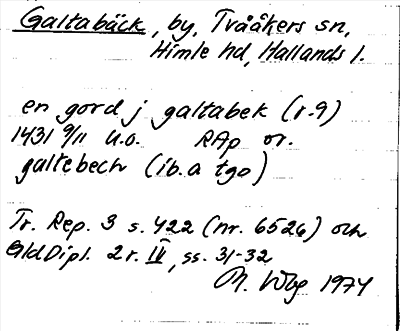 Galtabäck, by, Tvååkers sn,
Himle hd, Hallands l.
en gord j galtabek (r.9)
1431 9/11 u.o. RAp or.
galtebech (ib. a tgo)
Tr. Rep. 3 s. 422 (nr. 6526) och
GldDipl. 2 r. IV, ss. 31-32
M. 1974